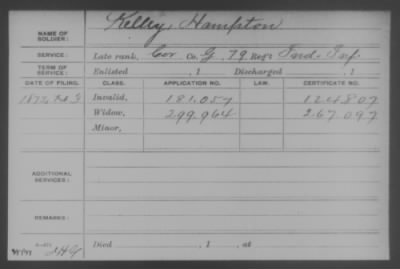 NAME OF SOLDIER: Kelley, Hampton
SERVICE: Late rank, Cor Co. G, 79 Reg't Ind. Inf.
TERM OF SERVICE: Enlisted , 1 Discharged , 1
DATE OF FILING. CLASS. APPLICATION NO. LAW. CERTIFICATE NO.
1872, Invalid, 181.057 124807
Widow, 299.964 267.097
Minor,
ADDITIONAL SERVICES:
REMARKS:
Died , 1 , at